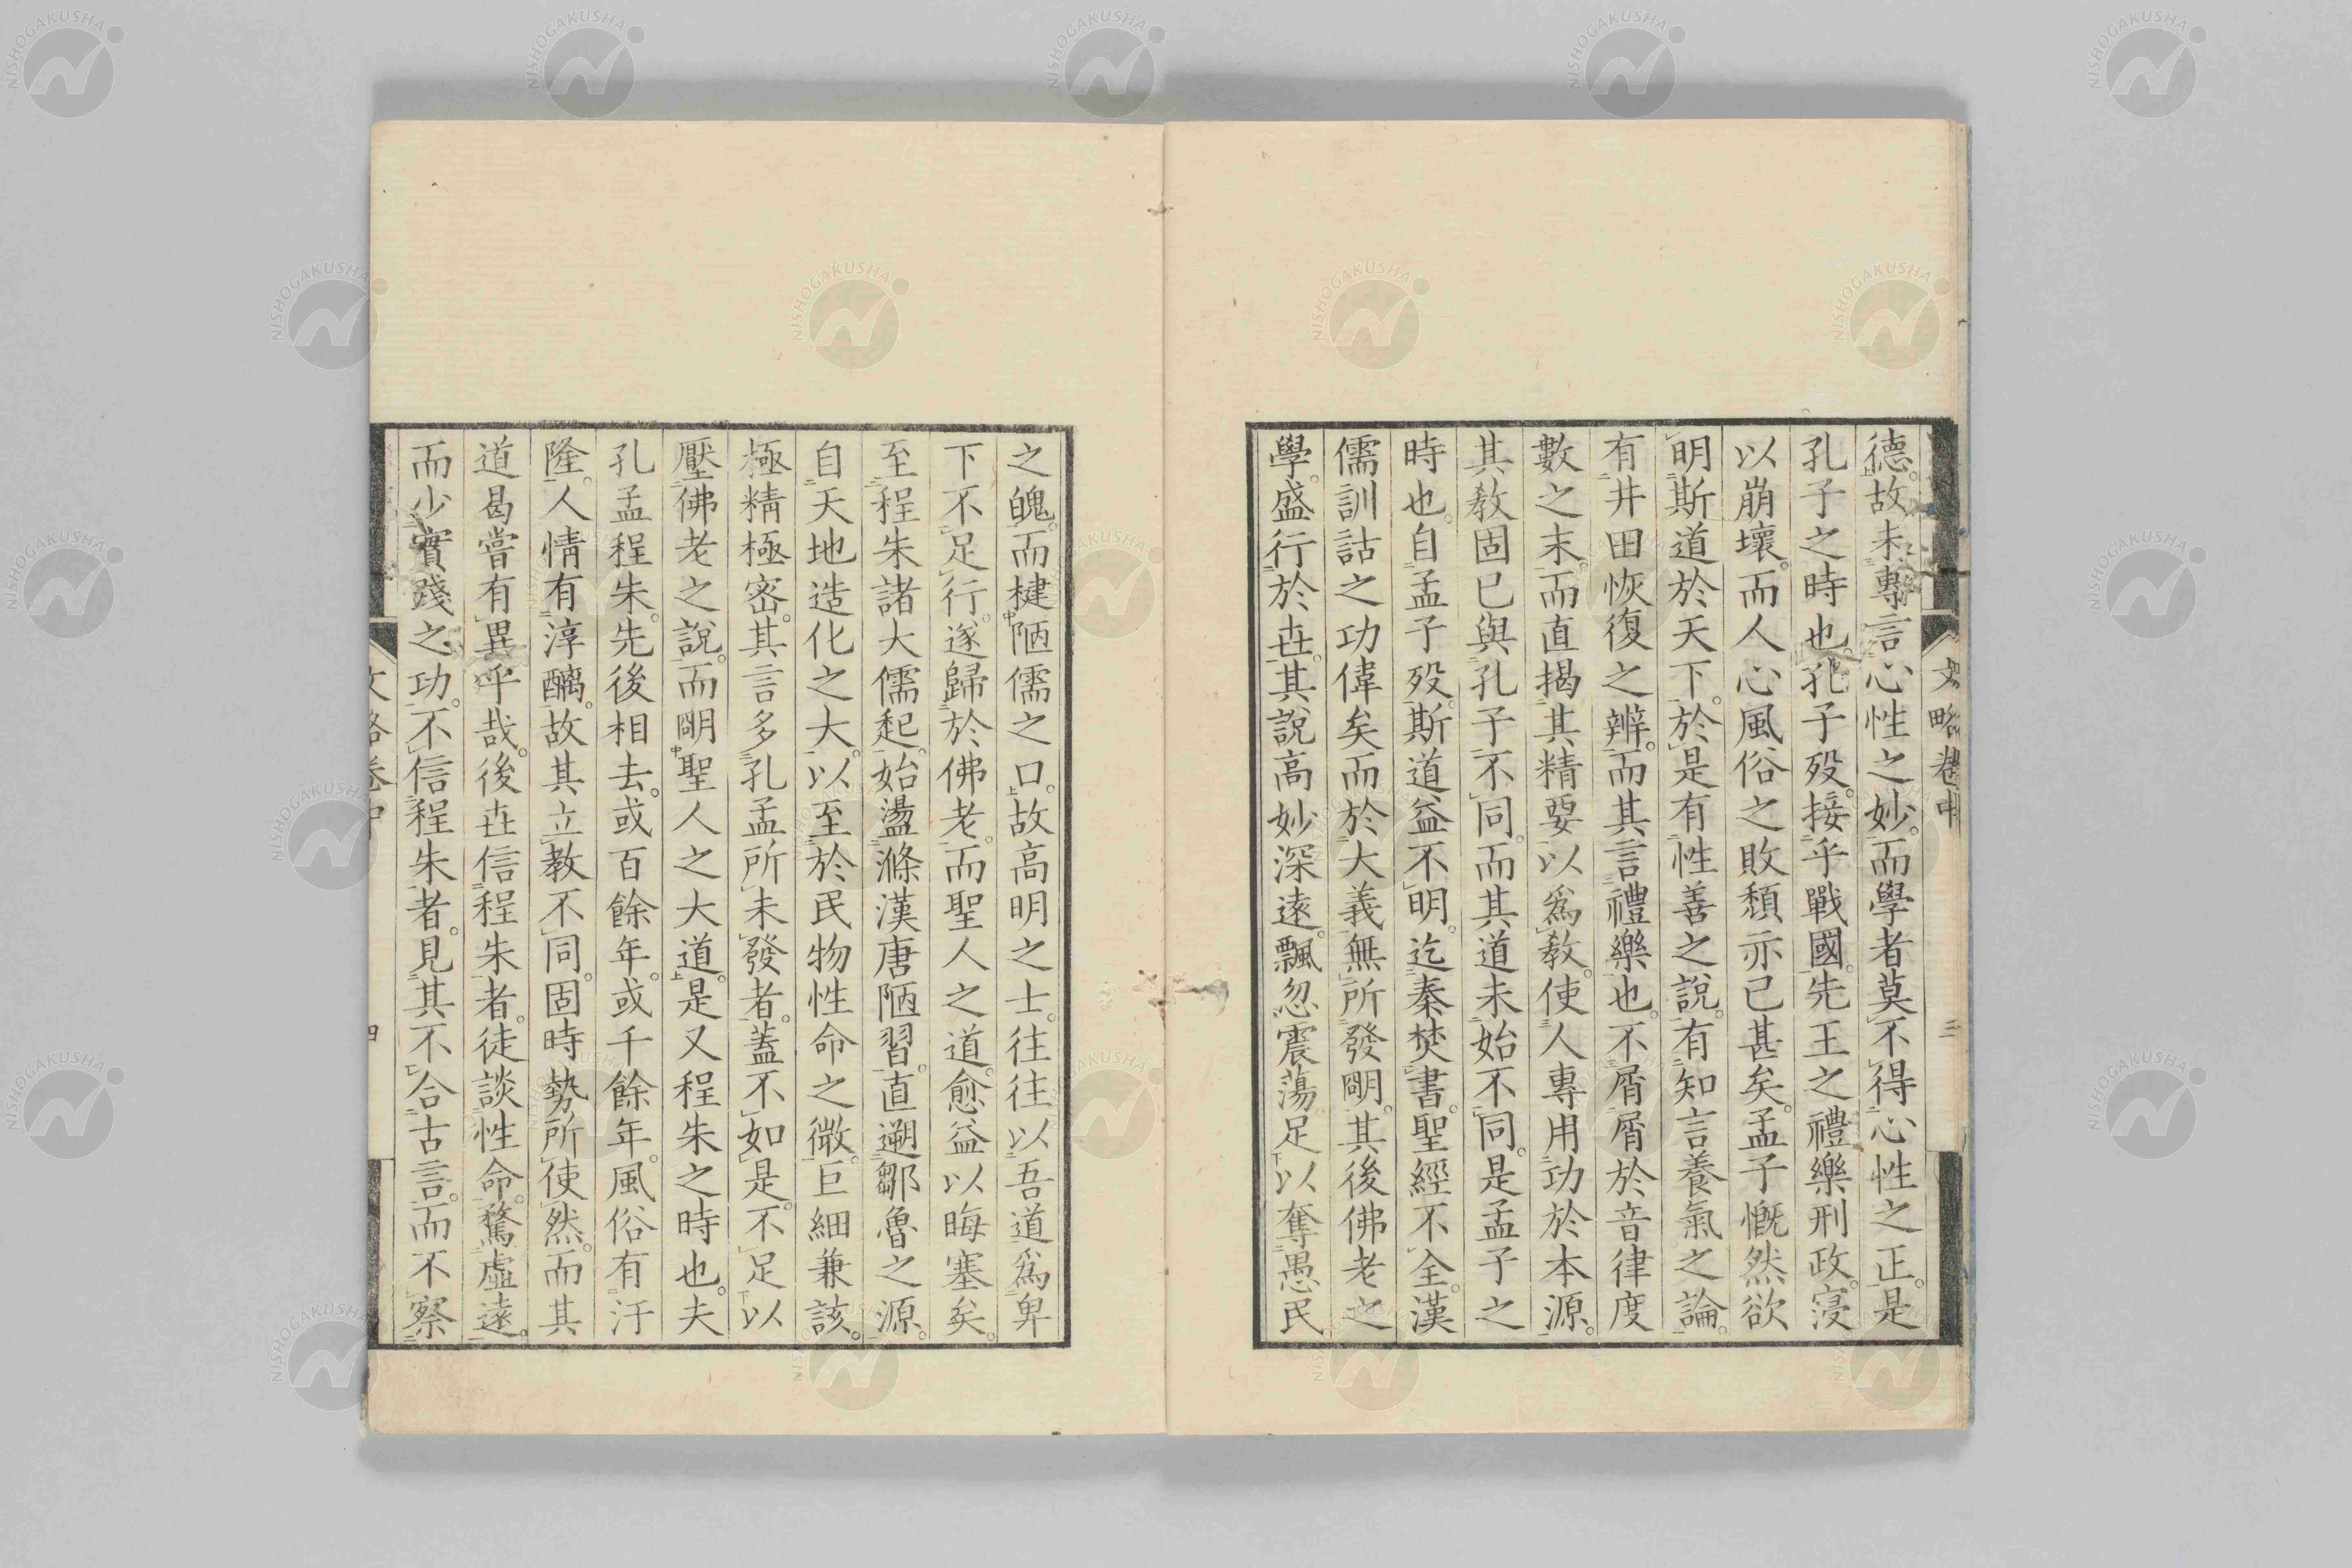 德。故未專言心性之妙。而學者莫不得心性之正。是
孔子之時也。孔子歿。接乎戰國。先王之禮樂刑政。寖
以崩壞。而人心風俗之敗頽亦已甚矣。孟子慨然欲
明斯道於天下。於是有性善之說。有知言養氣之論。
有井田恢復之辨。而其言禮樂也。不屑屑於音律度
數之末。而直揭其精要以爲教。使人專用功於本源。
其教固已與孔子不同。而其道未始不同。是孟子之
時也。自孟子歿。斯道益不明。迄秦焚書。聖經不全。漢
儒訓詁之功偉矣而於大義無所發明。其後佛老之
學。盛行於世。其說高妙深遠。飄忽震蕩。足以奪愚民
文略卷中
三
之魄。而楗陋儒之口。故高明之士。往往以吾道爲卑
下不足行。遂歸於佛老。而聖人之道。愈益以晦塞矣。
至程朱諸大儒起。始盪滌漢唐陋習。直遡鄒魯之源。
自天地造化之大。以至於民物性命之微。巨細兼該。
極精極密。其言多孔孟所未發者。蓋不如是。不足以
壓佛老之說。而明聖人之大道。是又程朱之時也。夫
孔孟程朱。先後相去。或百餘年。或千餘年。風俗有汙
隆。人情有淳醨。故其立教不同。固時勢所使然。而其
道曷嘗有異乎哉。後世信程朱者。徒談性命。騖虛遠。
而少實踐之功。不信程朱者。見其不合古言。而不察
文略卷中
四
NISHOGAKUSHA